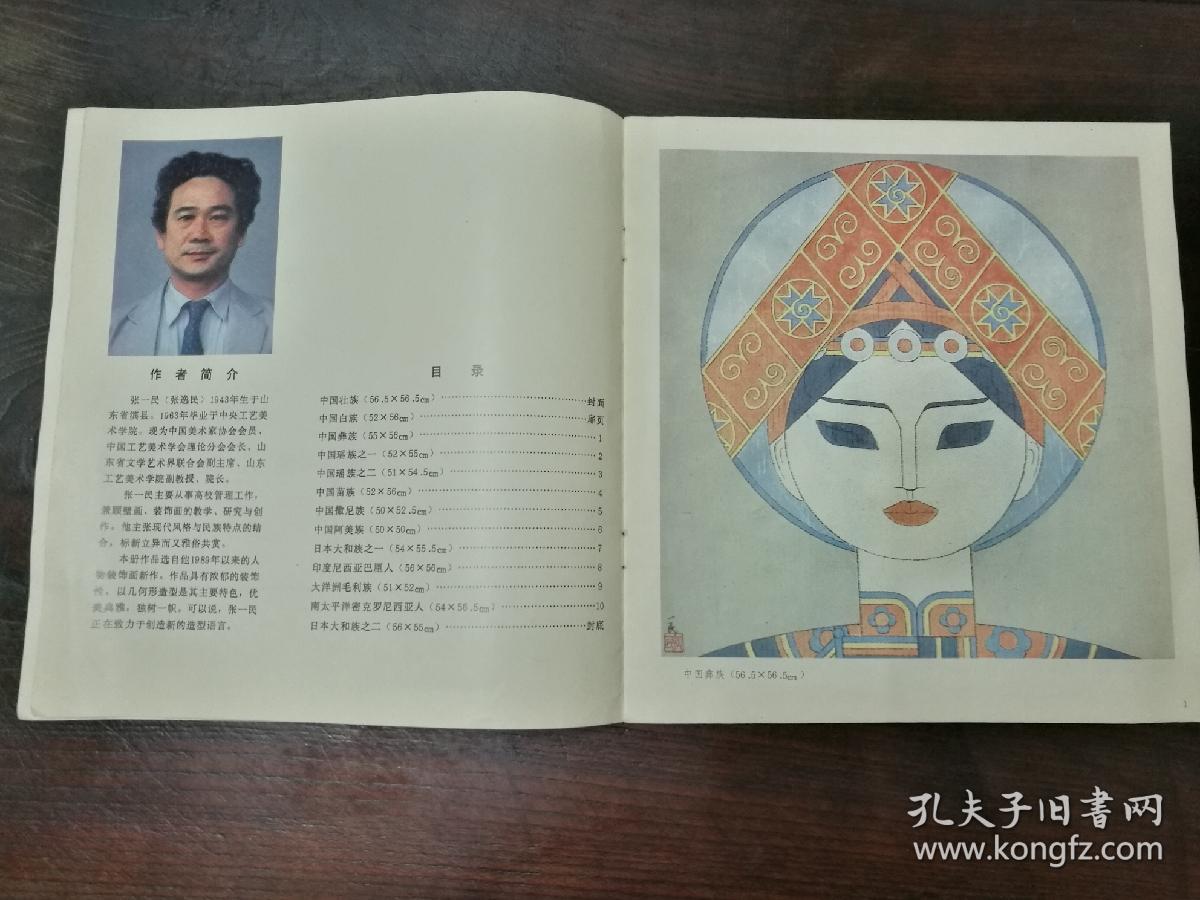 作者简介
张一民（张逸民）1943年生于山
东省滨县。1963年毕业于中央工艺美
术学院。现为中国美术家协会会员，
中国工艺美术学会理论分会会长、山
东省文学艺术界联合会副主席、山东
工艺美术学院副教授、院长。
张一民主要从事高校管理工作，
兼顾壁画、装饰画的教学、研究与创
作。他主张现代风格与民族特点的结
合，标新立异而又雅俗共赏。
本册作品选自他1989年以来的人
物装饰画新作。作品具有浓郁的装饰
性。以几何形造型是其主要特色，优
美典雅，独树一帜。可以说，张一民
正在致力于创造新的造型语言。
目录
中国壮族（56.5×56.5cm）……封面
中国白族（52×56cm）……扉页
中国彝族（55×55cm）……1
中国瑶族之一（52×55cm）……2
中国瑶族之二（51×54.5cm）……3
中国苗族（52×56cm）……4
中国撒尼族（50×52.5cm）……5
中国阿美族（50×50cm）……6
日本大和族之一（54×55.5cm）……7
印度尼西亚巴厘人（56×56cm）……8
大洋洲毛利族（51×52cm）……9
南太平洋密克罗尼西亚人（54×56.5cm）……10
日本大和族之二（56×55cm）……封底
中国彝族（56.5×56.5cm）
1
孔夫子旧书网
www.kongfz.com